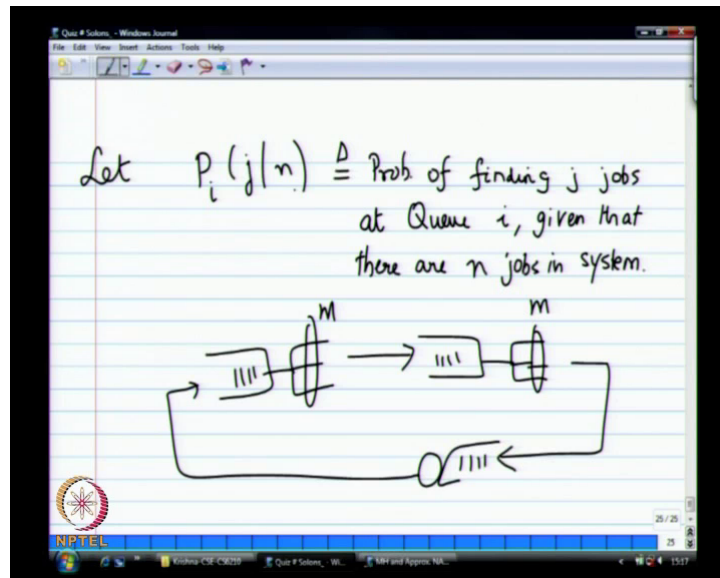 Quiz # Solons_ - Windows Journal
File Edit View Insert Actions Tools Help
Let P_i (j|n) ≜ Prob. of finding j jobs
at Queue i, given that
there are n jobs in system.
m
m
25 / 25
25
NPTEL
Krishna-CSE-CS6210
Quiz # Solons_ - Wi...
MH and Approx. NA...
1517